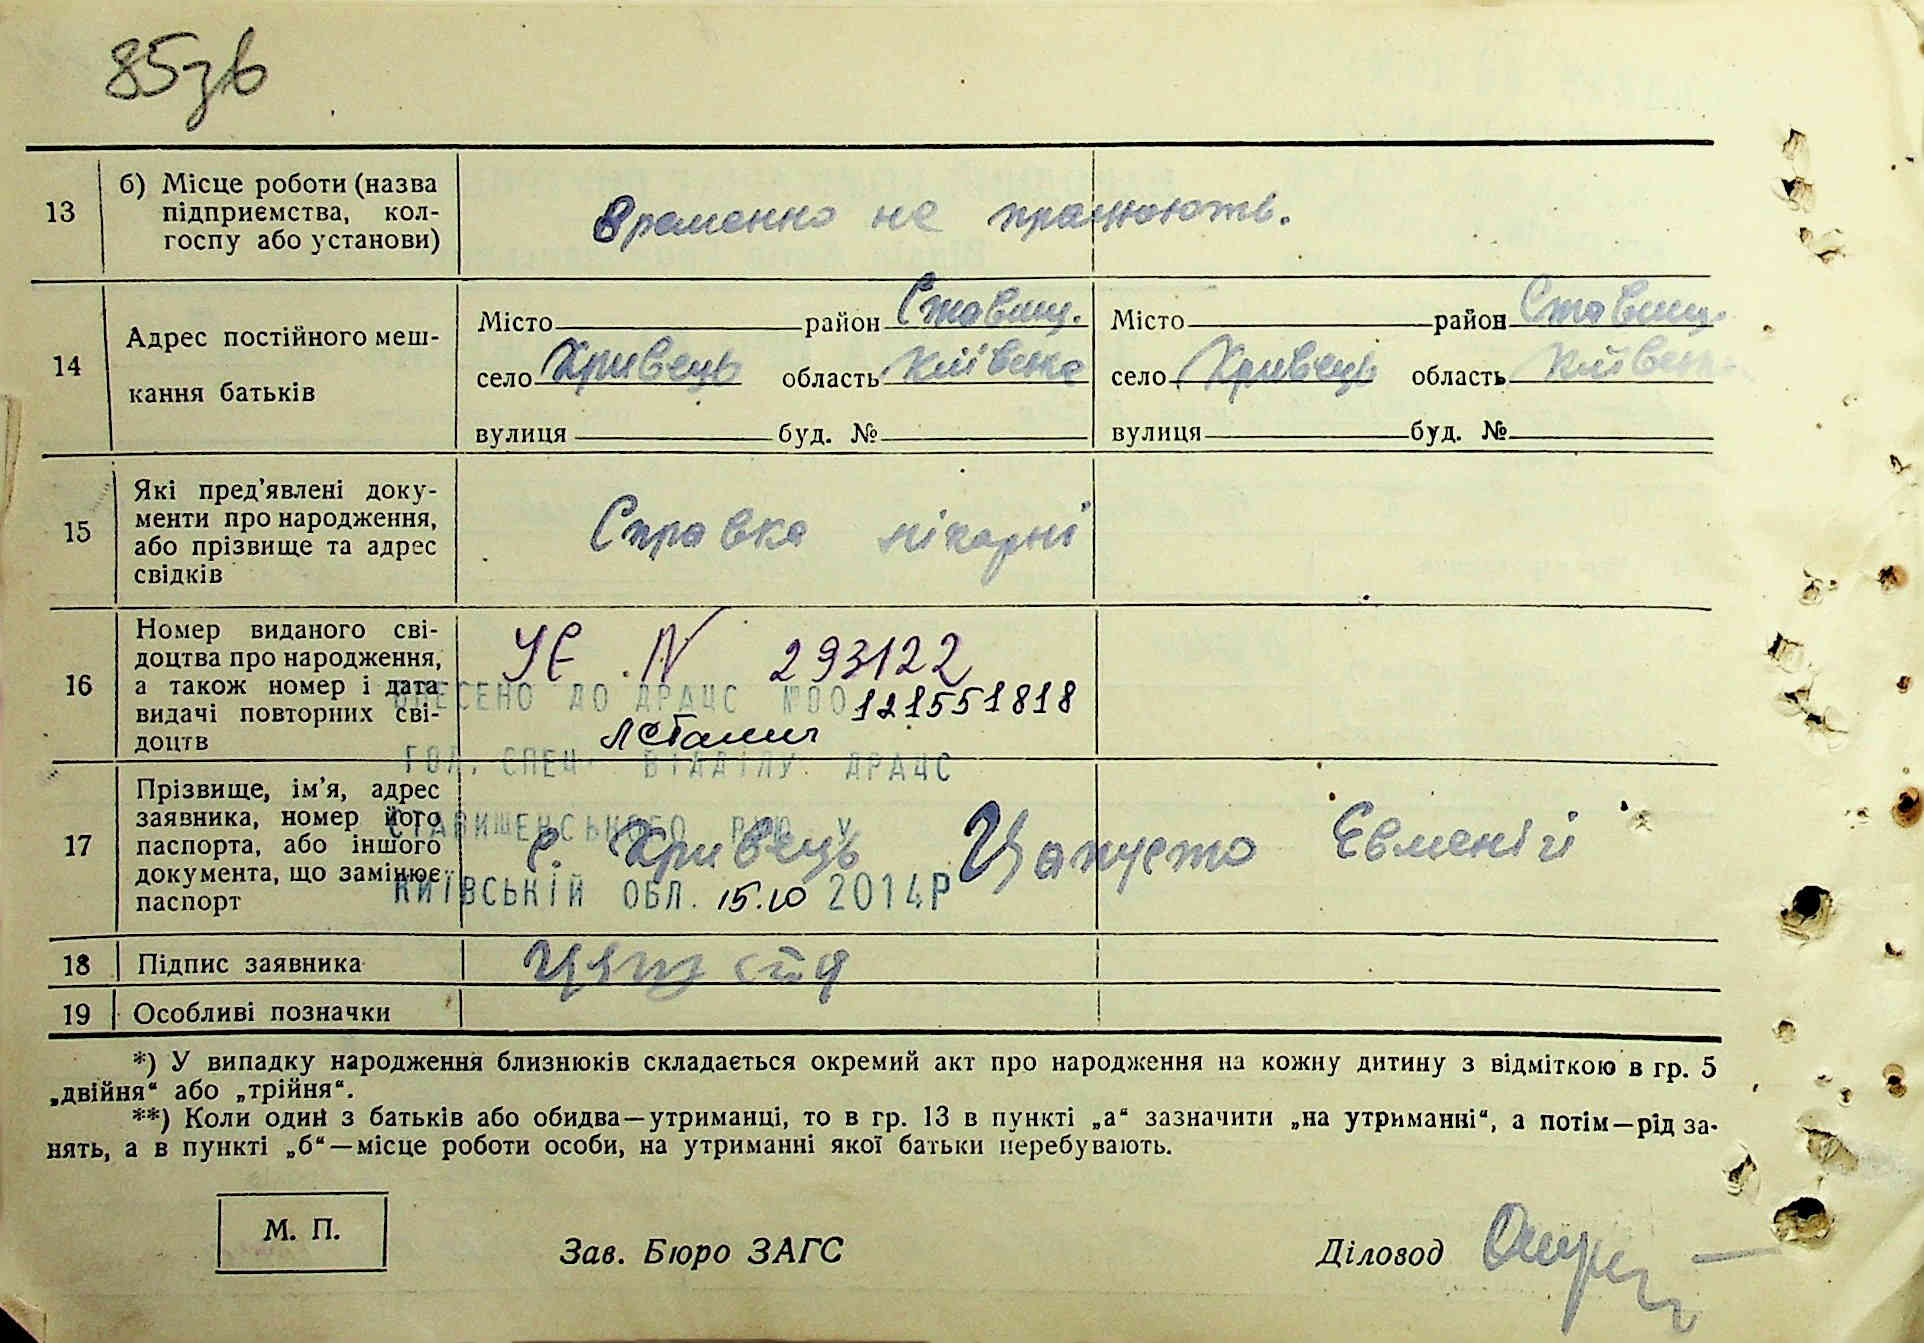 85зв
13
б) Місце роботи (назва
підприємства, кол-
госпу або установи)
временно не працюють.
14
Адрес постійного меш-
кання батьків
Місто район Ставищ.
село Кривець область Київська
вулиця буд. №
Місто район Ставищ.
село Кривець область Київська
вулиця буд. №
15
Які пред'явлені доку-
менти про народження,
або прізвище та адрес
свідків
Справка лікарні
16
Номер виданого сві-
доцтва про народження,
а також номер і дата
видачі повторних сві-
доцтв
УЄ N 293122
ВНЕСЕНО ДО ДРАЦС №00121551818
ГОЛ. СПЕЦ. ВІДДІЛУ ДРАЦС
СТАВИЩЕНСЬКОГО РУЮ У
КИЇВСЬКІЙ ОБЛ. 15.10 2014Р
17
Прізвище, ім'я, адрес
заявника, номер його
паспорта, або іншого
документа, що замінює
паспорт
с. Кривець Цапуста Евменій
18
Підпис заявника
19
Особливі позначки
*) У випадку народження близнюків складається окремий акт про народження на кожну дитину з відміткою в гр. 5
„двійня“ або „трійня“.
**) Коли один з батьків або обидва—утриманці, то в гр. 13 в пункті „а“ зазначити „на утриманні“, а потім—рід за-
нять, а в пункті „б“—місце роботи особи, на утриманні якої батьки перебувають.
М. П.
Зав. Бюро ЗАГС
Діловод